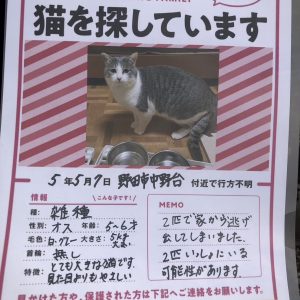 猫を探しています
5年5月9日 野田市中野台 付近で行方不明
情報
こんな子です!
種: 雑種
性別: オス 年齢: 5〜6才
毛色: 白・グレー 大きさ: 5kg
首輪: 無し
特徴: とても大きな猫です。
見た目よりもやさしい
MEMO
2匹で家から逃げ
出してしまいました。
2匹いっしょにいる
可能性があります。
見かけた方や、保護された方は下記へご連絡をお願いします。